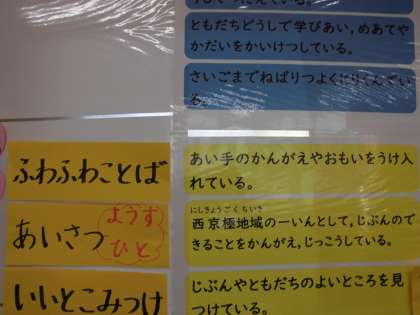 ともだちどうしで学びあい、めあてや
かだいをかいけつしている。
さいごまでねばりつよくとりくんでい
る。
ふわふわことば
あい手のかんがえやおもいをうけ入
れている。
あいさつ
ようす
ひと
にしきょうごくちいき
西京極地域の一いんとして，じぶんので
きることをかんがえ，じっこうしている。
いいとこみつけ
じぶんやともだちのよいところを見
つけている。